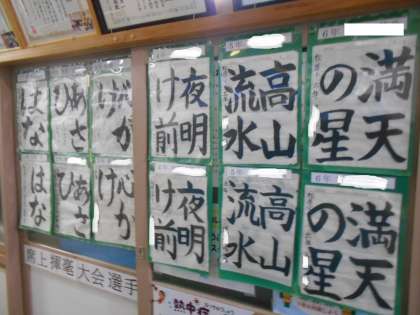 6年
満天
の星
5年
高山
流水
夜明
け前
心が
け
あさ
ひ
はな
6年
満天
の星
5年
高山
流水
夜明
け前
心が
け
あさ
ひ
はな
席上揮毫大会選手
熱中症